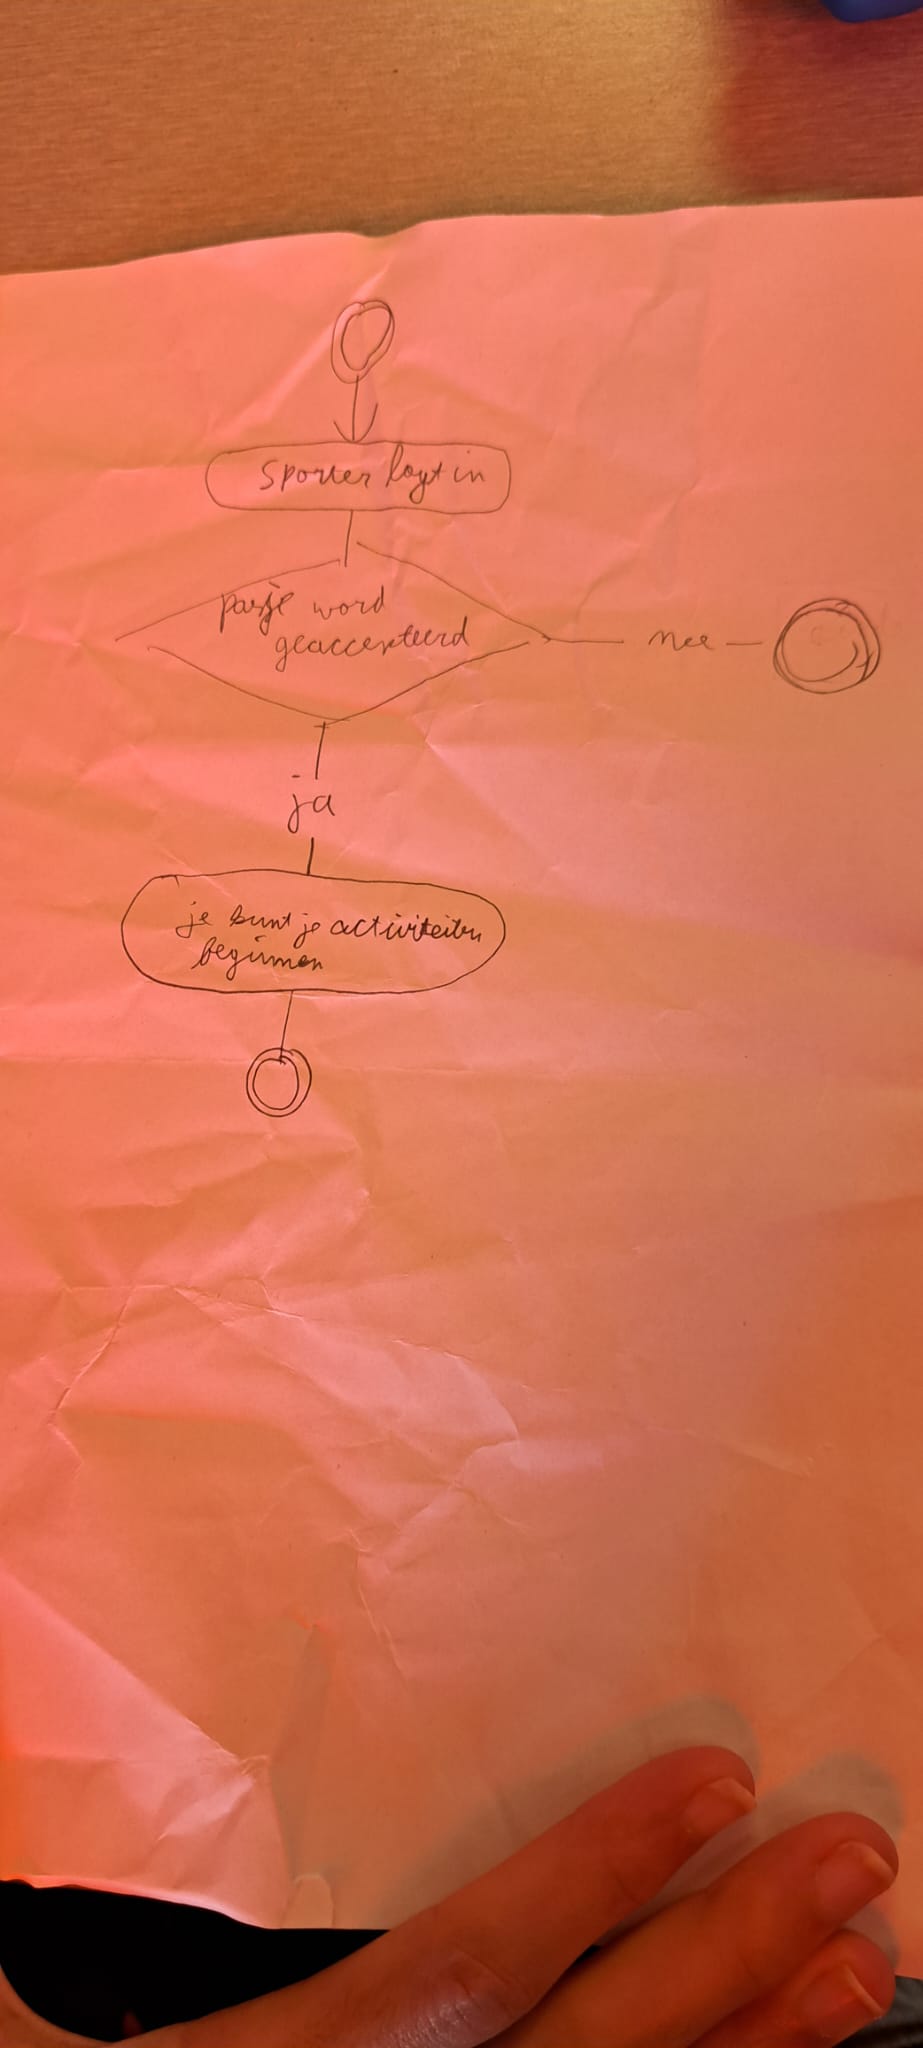 Sporter logt in
pasje word
geaccepteerd
nee
ja
je kunt je activiteiten
beginnen